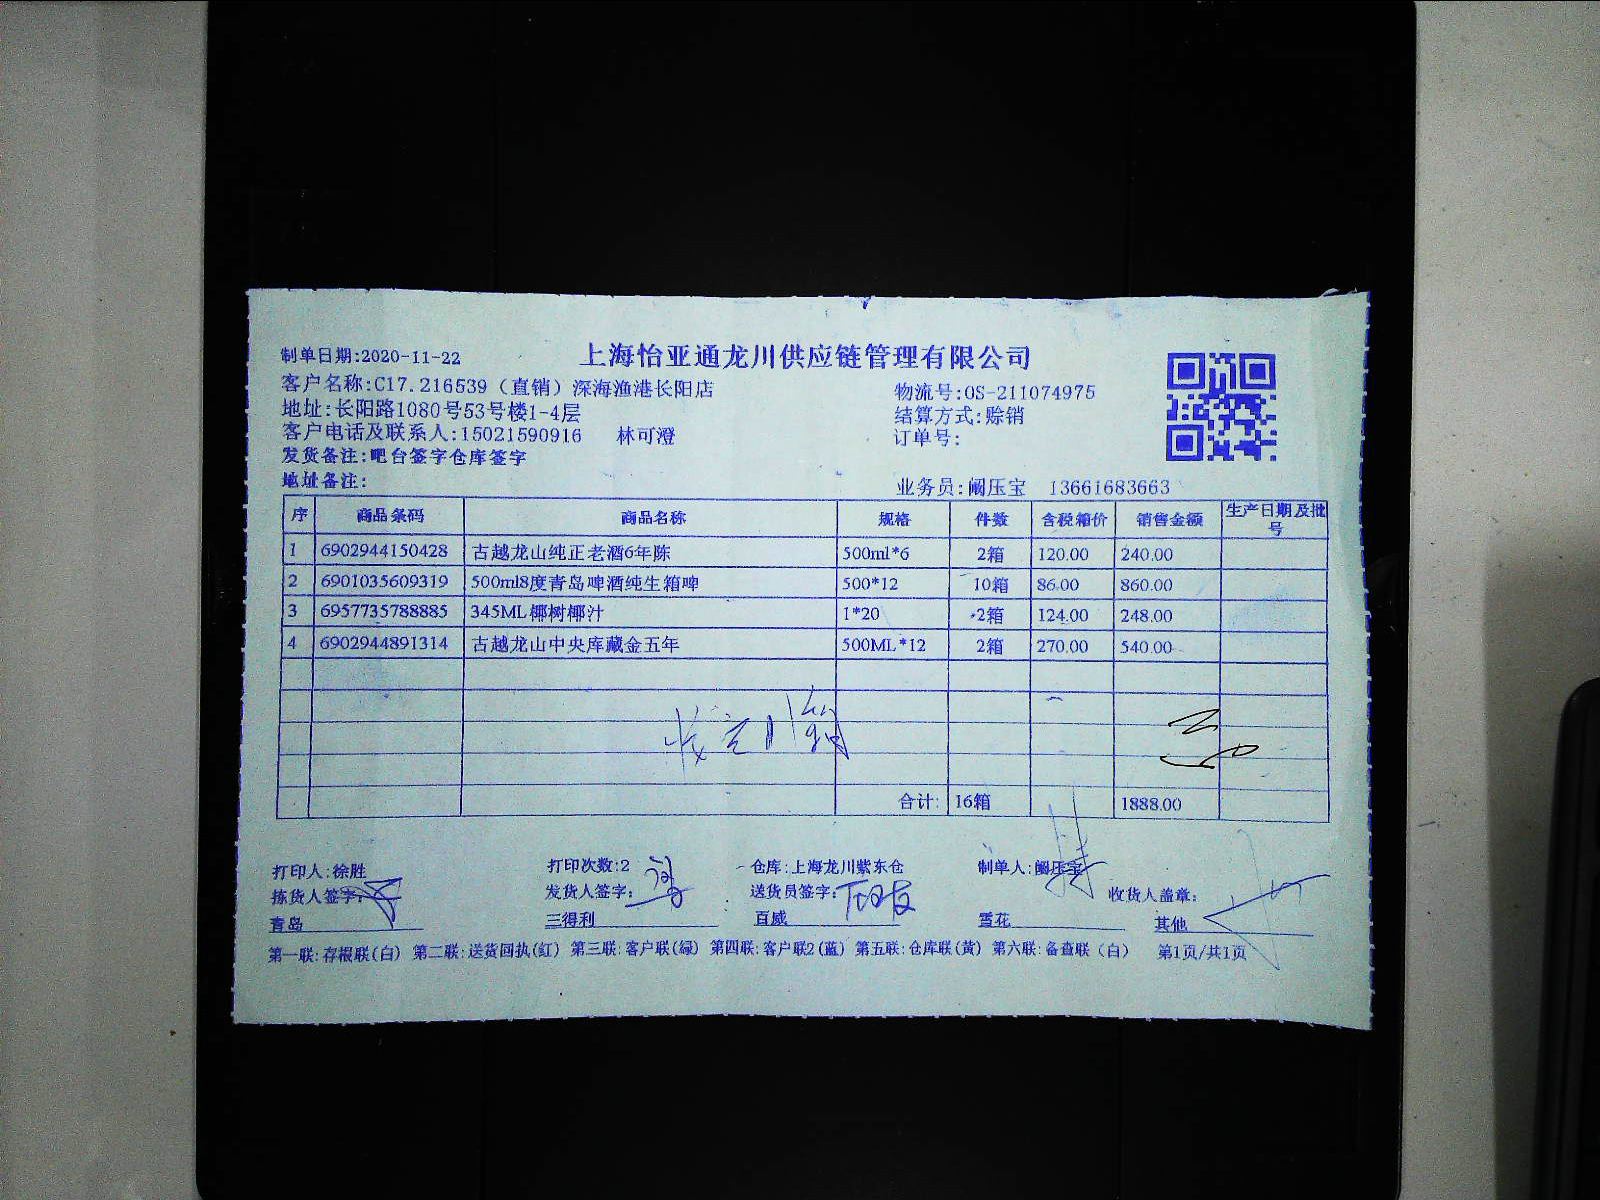 上海怡亚通龙川供应链管理有限公司
制单日期:2020-11-22
客户名称:C17.216539（直销）深海渔港长阳店 物流号:OS-211074975
地址:长阳路1080号53号楼1-4层 结算方式:赊销
客户电话及联系人:15021590916 林可澄 订单号:
发货备注:吧台签字仓库签字
地址备注: 业务员:阚压宝 13661683663
序 商品条码 商品名称 规格 件数 含税箱价 销售金额 生产日期及批号
1 6902944150428 古越龙山纯正老酒6年陈 500ml*6 2箱 120.00 240.00
2 6901035609319 500ml8度青岛啤酒纯生箱啤 500*12 10箱 86.00 860.00
3 6957735788885 345ML椰树椰汁 1*20 2箱 124.00 248.00
4 6902944891314 古越龙山中央库藏金五年 500ML*12 2箱 270.00 540.00
合计: 16箱 1888.00
打印人:徐胜 打印次数:2 仓库:上海龙川紫东仓 制单人:阚压宝
拣货人签字: 发货人签字: 送货员签字: 收货人盖章:
青岛 三得利 百威 雪花 其他
第一联:存根联(白) 第二联:送货回执(红) 第三联:客户联(绿) 第四联:客户联2(蓝) 第五联:仓库联(黄) 第六联:备查联（白） 第1页/共1页